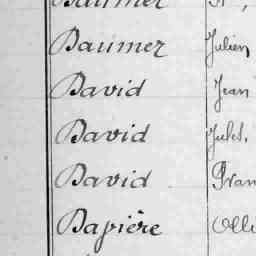 Baumer
Baumer Julien
Bavid Jean
Bavid Jules,
Bavid Fran
Bapière Olli